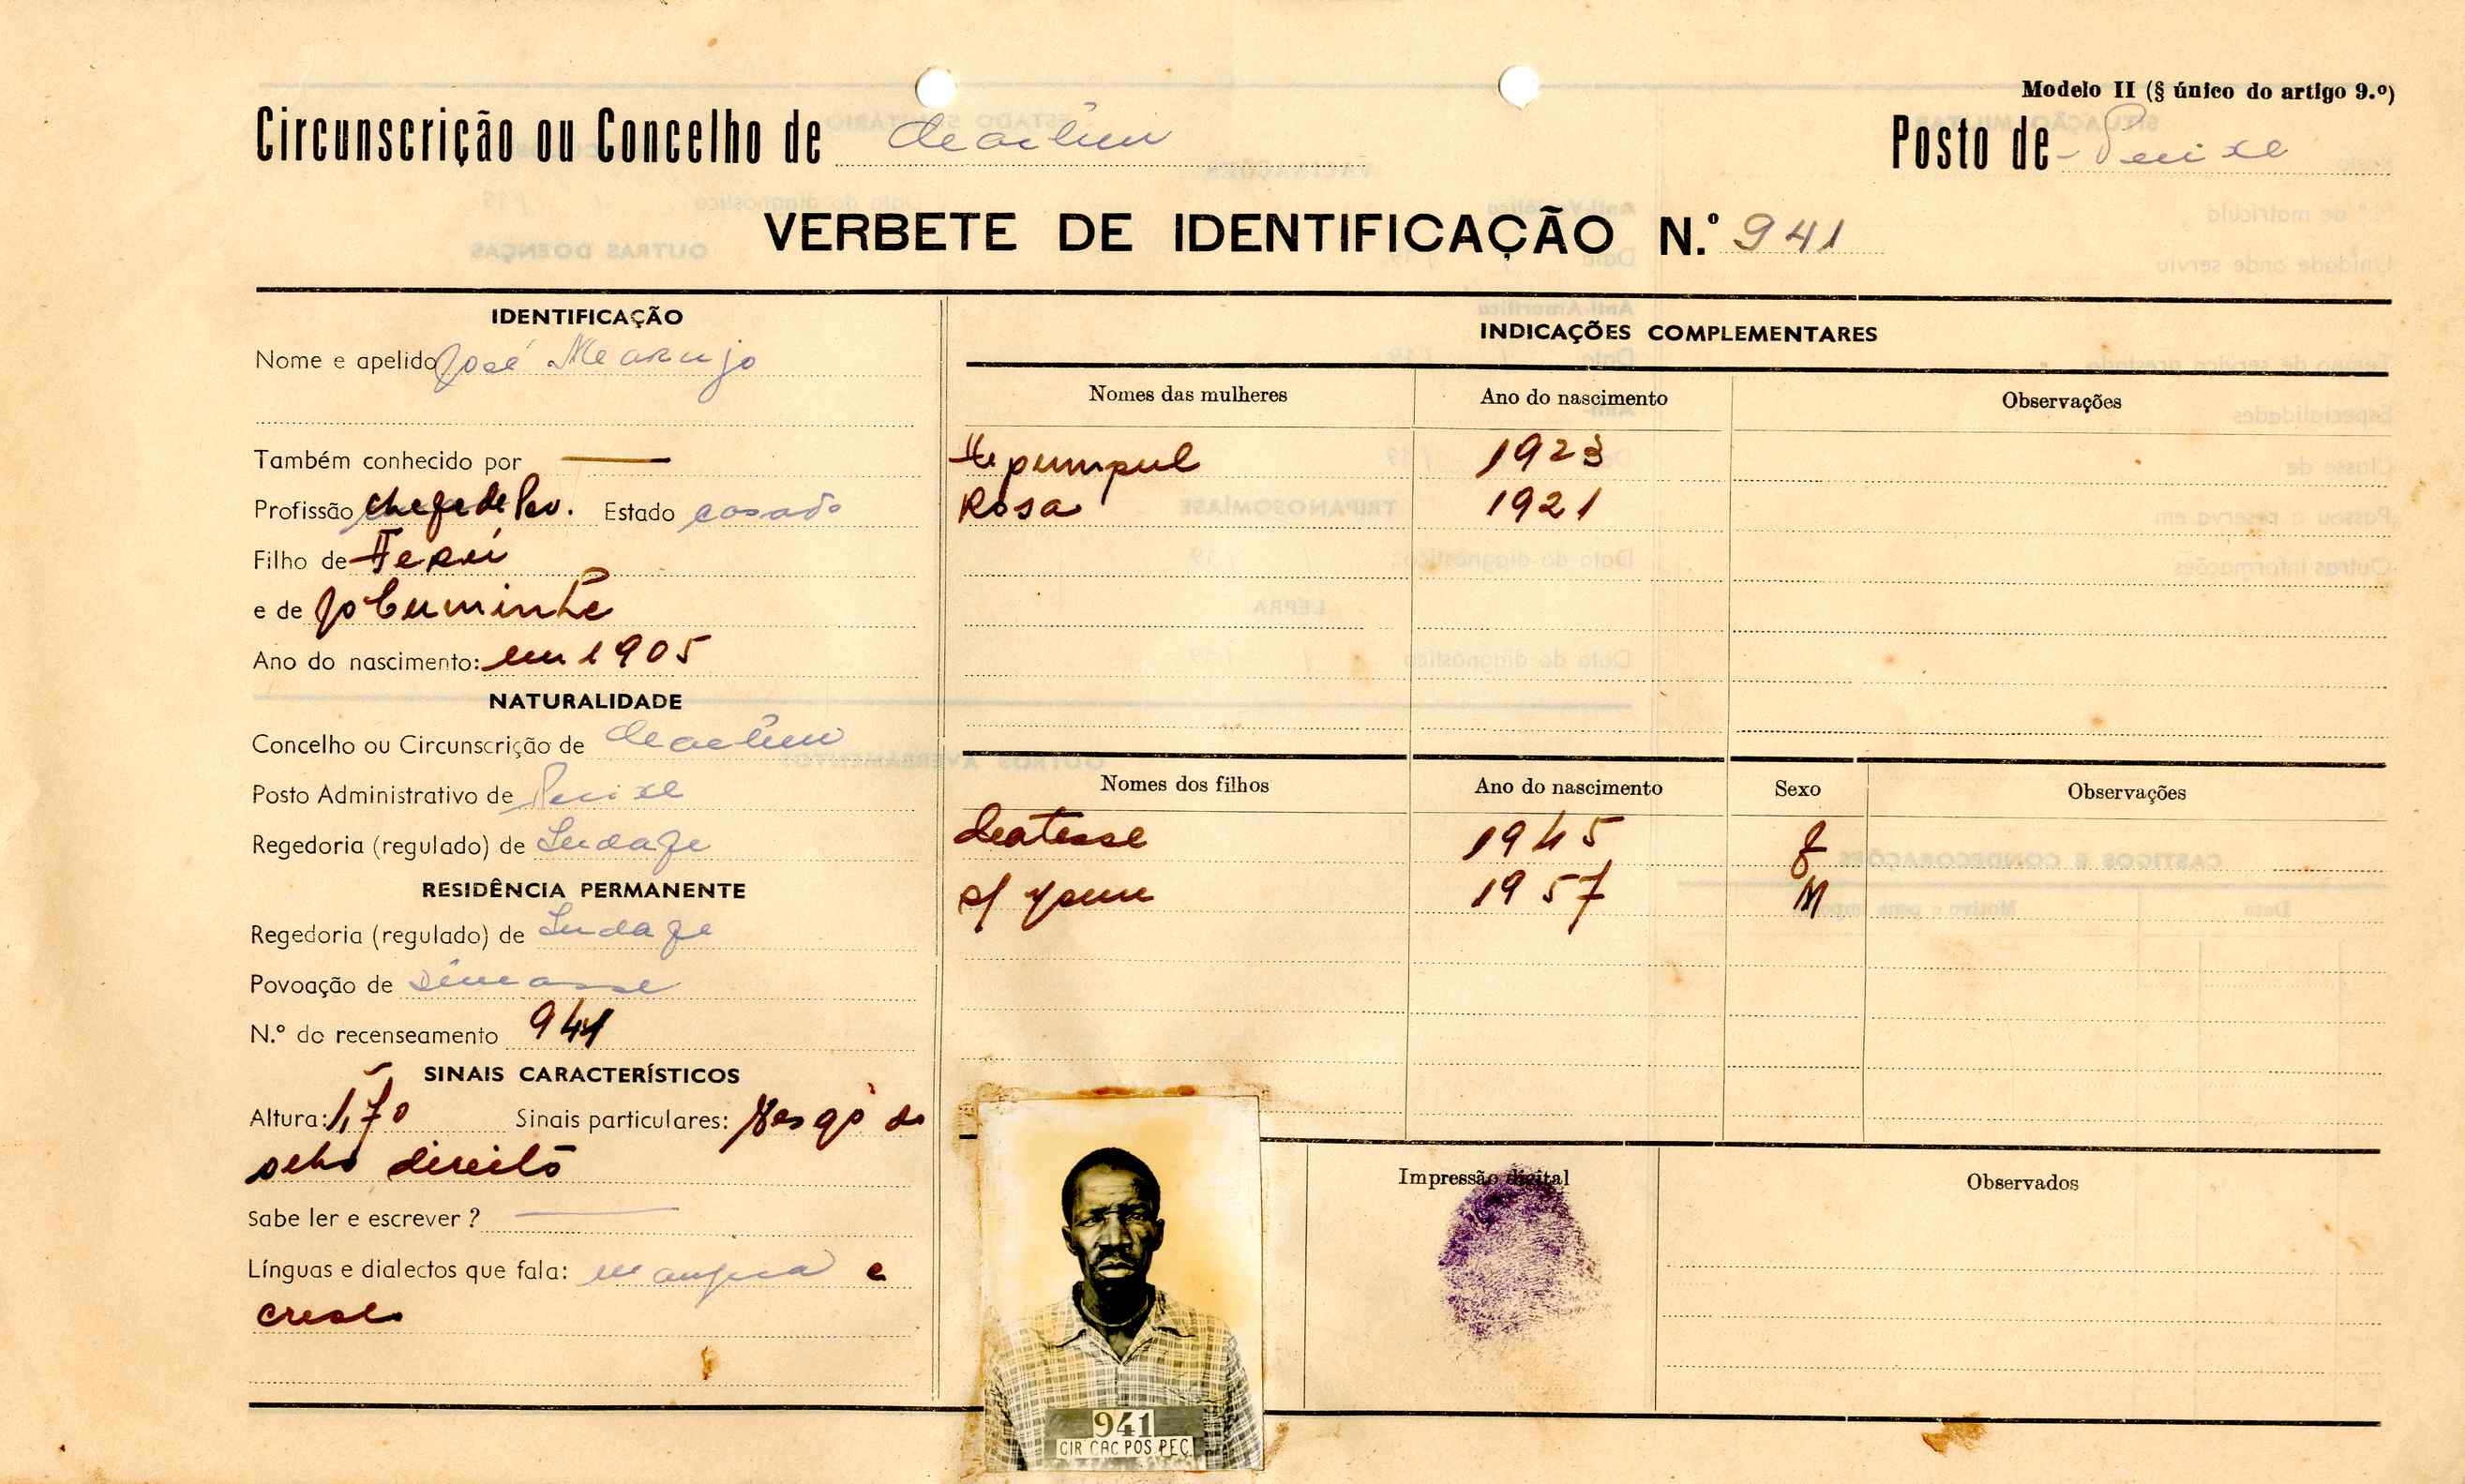 Modelo II (§ único do artigo 9.º)
Circunscrição ou Concelho de Cacheu
Posto de Pecixe
VERBETE DE IDENTIFICAÇÃO N.º 941
IDENTIFICAÇÃO
Nome e apelido José
Também conhecido por —
Profissão chefe de Pov. Estado casado
Filho de
e de
Ano do nascimento: em 1905
NATURALIDADE
Concelho ou Circunscrição de Cacheu
Posto Administrativo de Pecixe
Regedoria (regulado) de
RESIDÊNCIA PERMANENTE
Regedoria (regulado) de
Povoação de
N.º do recenseamento 941
SINAIS CARACTERÍSTICOS
Altura: 1,70 Sinais particulares: Rasgo do
olho direito
Sabe ler e escrever ? —
Línguas e dialectos que fala: manjaca e
creolo
INDICAÇÕES COMPLEMENTARES
Nomes das mulheres Ano do nascimento Observações
1923
Rosa 1921
Nomes dos filhos Ano do nascimento Sexo Observações
1945 f
s/ nome 1957 M
Impressão digital
Observados
941
CIR CAC POS PEC